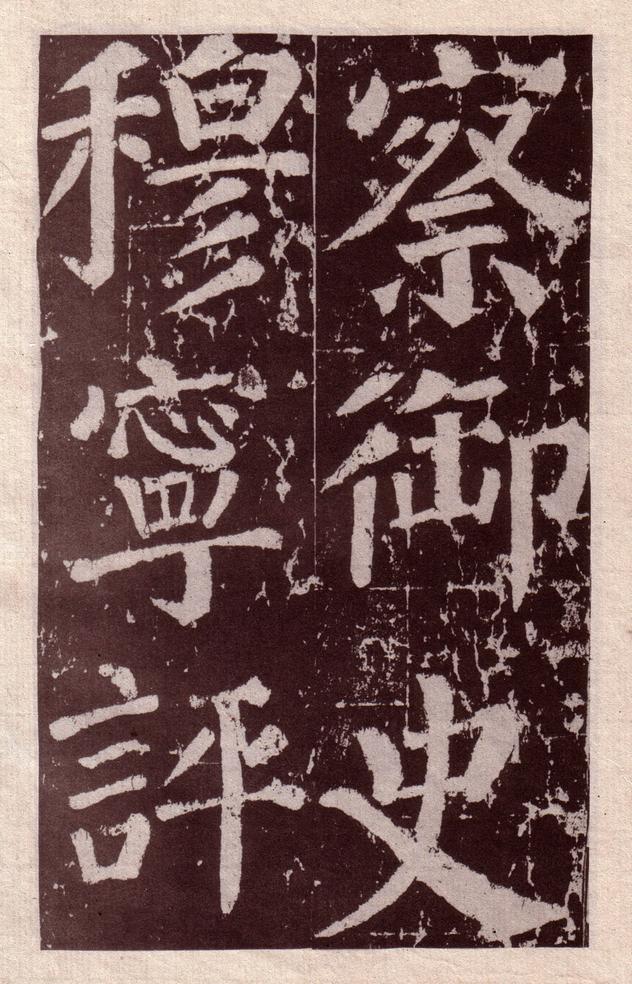 察御史
穆寧評